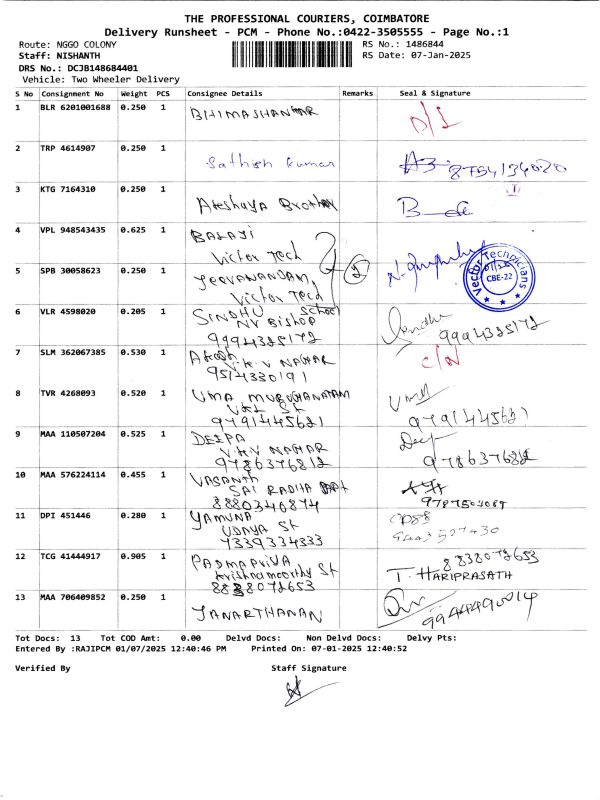 THE PROFESSIONAL COURIERS, COIMBATORE
Delivery Runsheet - PCM - Phone No.:0422-3505555 - Page No.:1
Route: NGGO COLONY
RS No.: 1486844
Staff: NISHANTH
RS Date: 07-Jan-2025
DRS No.: DCJB148684401
Vehicle: Two Wheeler Delivery
S No Consignment No Weight PCS Consignee Details Remarks Seal & Signature
1 BLR 6201001688 0.250 1 BHIMASHANKAR D/L
2 TRP 4614907 0.250 1 Sathish kumar 8754134020
3 KTG 7164310 0.250 1 Akshaya Brothers
4 VPL 948543435 0.625 1 BALAJI
Victor Tech
5 SPB 30058623 0.250 1 JEEVANANDAM, Vector Technicians CBE-22
Victor Tech
6 VLR 4598020 0.205 1 SINDHU School Sindhu
NV Bishop
9994325172 9994325172
7 SLM 362067385 0.530 1 Akash C/N
V.K.V NAGAR
9514330191
8 TVR 4268093 0.520 1 UMA MURUGHANATAM Uma
VKL St
9791445621 9791445621
9 MAA 110507204 0.525 1 DEEPA Deep
VKV NAGAR
9786376812 9786376812
10 MAA 576224114 0.455 1 VASANTH
SAI RADHA Apt
8880346874
11 DPI 451446 0.280 1 YAMUNA
UDAYA St
7339334333
12 TCG 41444917 0.905 1 PADMAPRIYA 8838072653
krishnamoorthy St T. HARIPRASATH
8838072653
13 MAA 706409852 0.250 1 JANARTHANAN 9944490014
Tot Docs: 13 Tot COD Amt: 0.00 Delvd Docs: Non Delvd Docs: Delvy Pts:
Entered By :RAJIPCM 01/07/2025 12:40:46 PM Printed On: 07-01-2025 12:40:52
Verified By Staff Signature